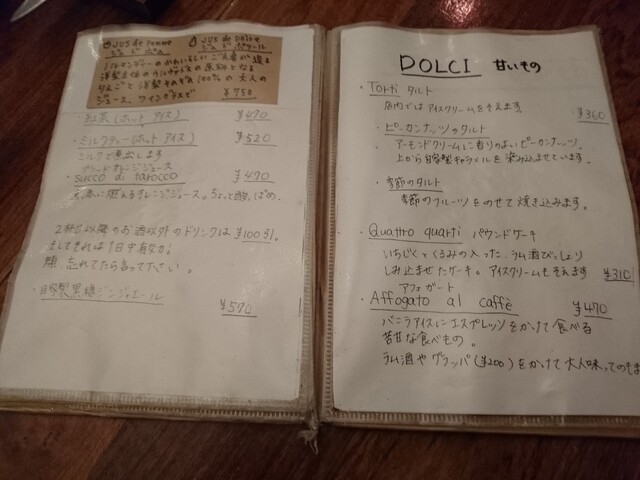 JUS de Pomme JUS de Poire
ジュ ド ポム ジュ ド ポワール
洋梨
りんごと洋梨それぞれ100%の大人の
ジュース、ワイングラスで ¥750
・紅茶(ホット アイス) ¥470
・ミルクティー(ホット アイス) ¥520
ミルクで煮出します
ブラッドオレンジジュース
・succo di tarocco ¥470
オレンジジュース。ちょっと酸っぱめ。
2杯目以降のお酒以外のドリンクは¥100引。
忘れてたら言って下さい。
・自家製黒糖ジンジャエール ¥570
DOLCI 甘いもの
・Torti タルト
店内ではアイスクリームをそえます ¥360
・ピーカンナッツのタルト
アーモンドクリームに香りのよいピーカンナッツ。
上から自家製キャラメルを染み込ませています。
・季節のタルト
季節のフルーツをのせて焼き込みます。
・Quattro quarti パウンドケーキ
いちじくとくるみの入った、ラム酒びっしょり
しみ込ませたケーキ。アイスクリームをそえます ¥310
アフォガート
・Affogato al caffè ¥470
バニラアイスにエスプレッソをかけて食べる
苦甘な食べもの。
ラム酒やグラッパ(¥200)をかけて大人味ってのもま